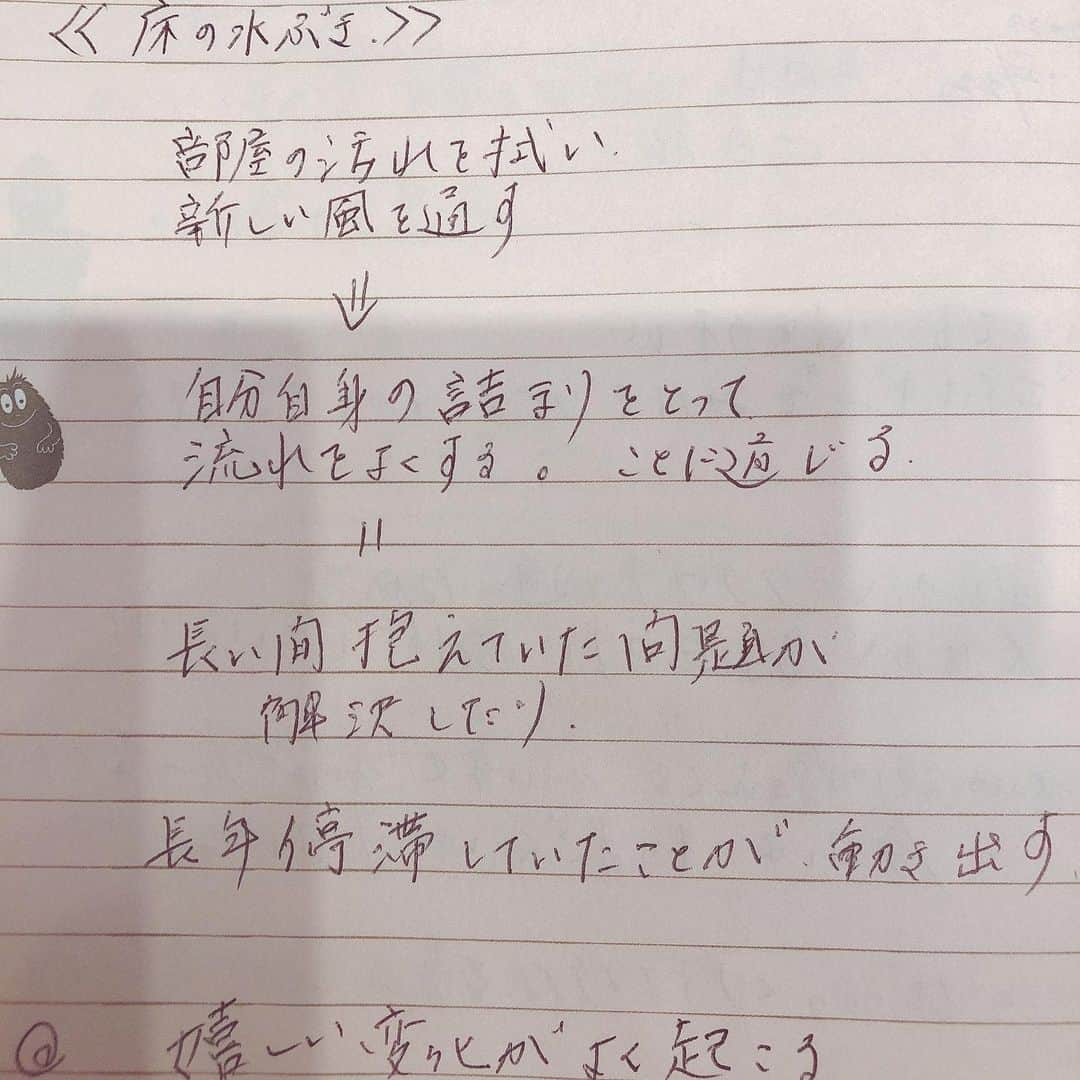 <<床の水ぶき.>>
部屋の汚れを拭い.
新しい風を通す
⇓
自分自身の詰まりをとって
流れをよくする。ことに通じる.
||
長い間抱えていた問題が
解決したり.
長年停滞していたことが.動き出す.
@ 嬉しい変化がよく起こる